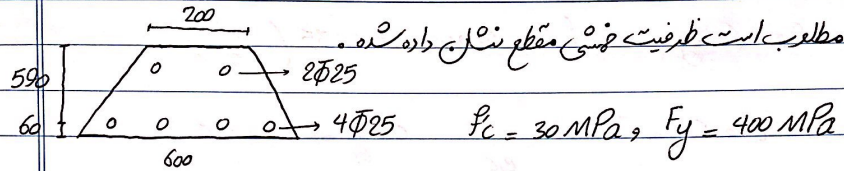 مطلوب است ظرفیت خمشی مقطع نشان داده شده.
200
590
2Φ25
60
4Φ25
f'c = 30 MPa, Fy = 400 MPa
600